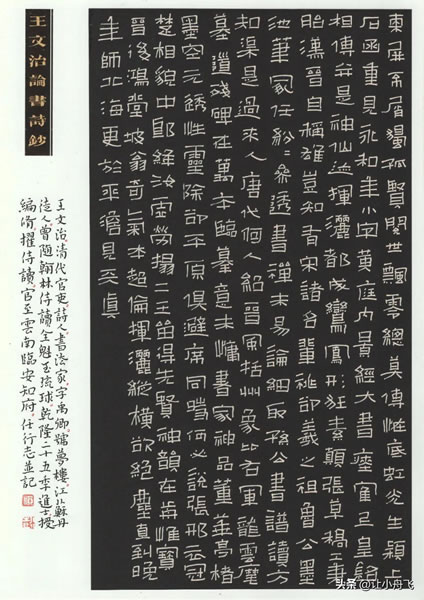 東屏獨孤賢閱世飄零總莫傳底虹光生穎上
石函重見永和年小字黃庭內景經大書瘞皇銘
相傳并是神仙迹揮灑都成鸞鳳形狂素顛張草稿書
胎漢晉自稱雄豈知有宋諸名輩祧卻羲之祖魯公墨
池筆冢任紛紛參透書禪未易論細取孫公書譜讀方
知渠是過來人唐代何人紹晉風括州象比右軍龍雲麾
墓道殘碑在萬本臨摹意未慵書家神品董華亭楮
墨空元透性靈除卻平原俱避席同時何必說張邢衣冠
楚相貌中郎絳汝虛勞搨二王得先賢神韻在惟寶
晉後鴻堂坡翁奇氣本超倫揮灑縱橫欲絕塵直到晚
年師北海更於平澹見天真
王文治論書詩鈔
王文治清代官吏詩人書法家字禹卿號夢樓江蘇丹
徒人曾隨翰林侍讀全魁至琉球乾隆二十五年進士授
編脩擢侍讀官至雲南臨安知府任行志並記
头条 @让小舟飞